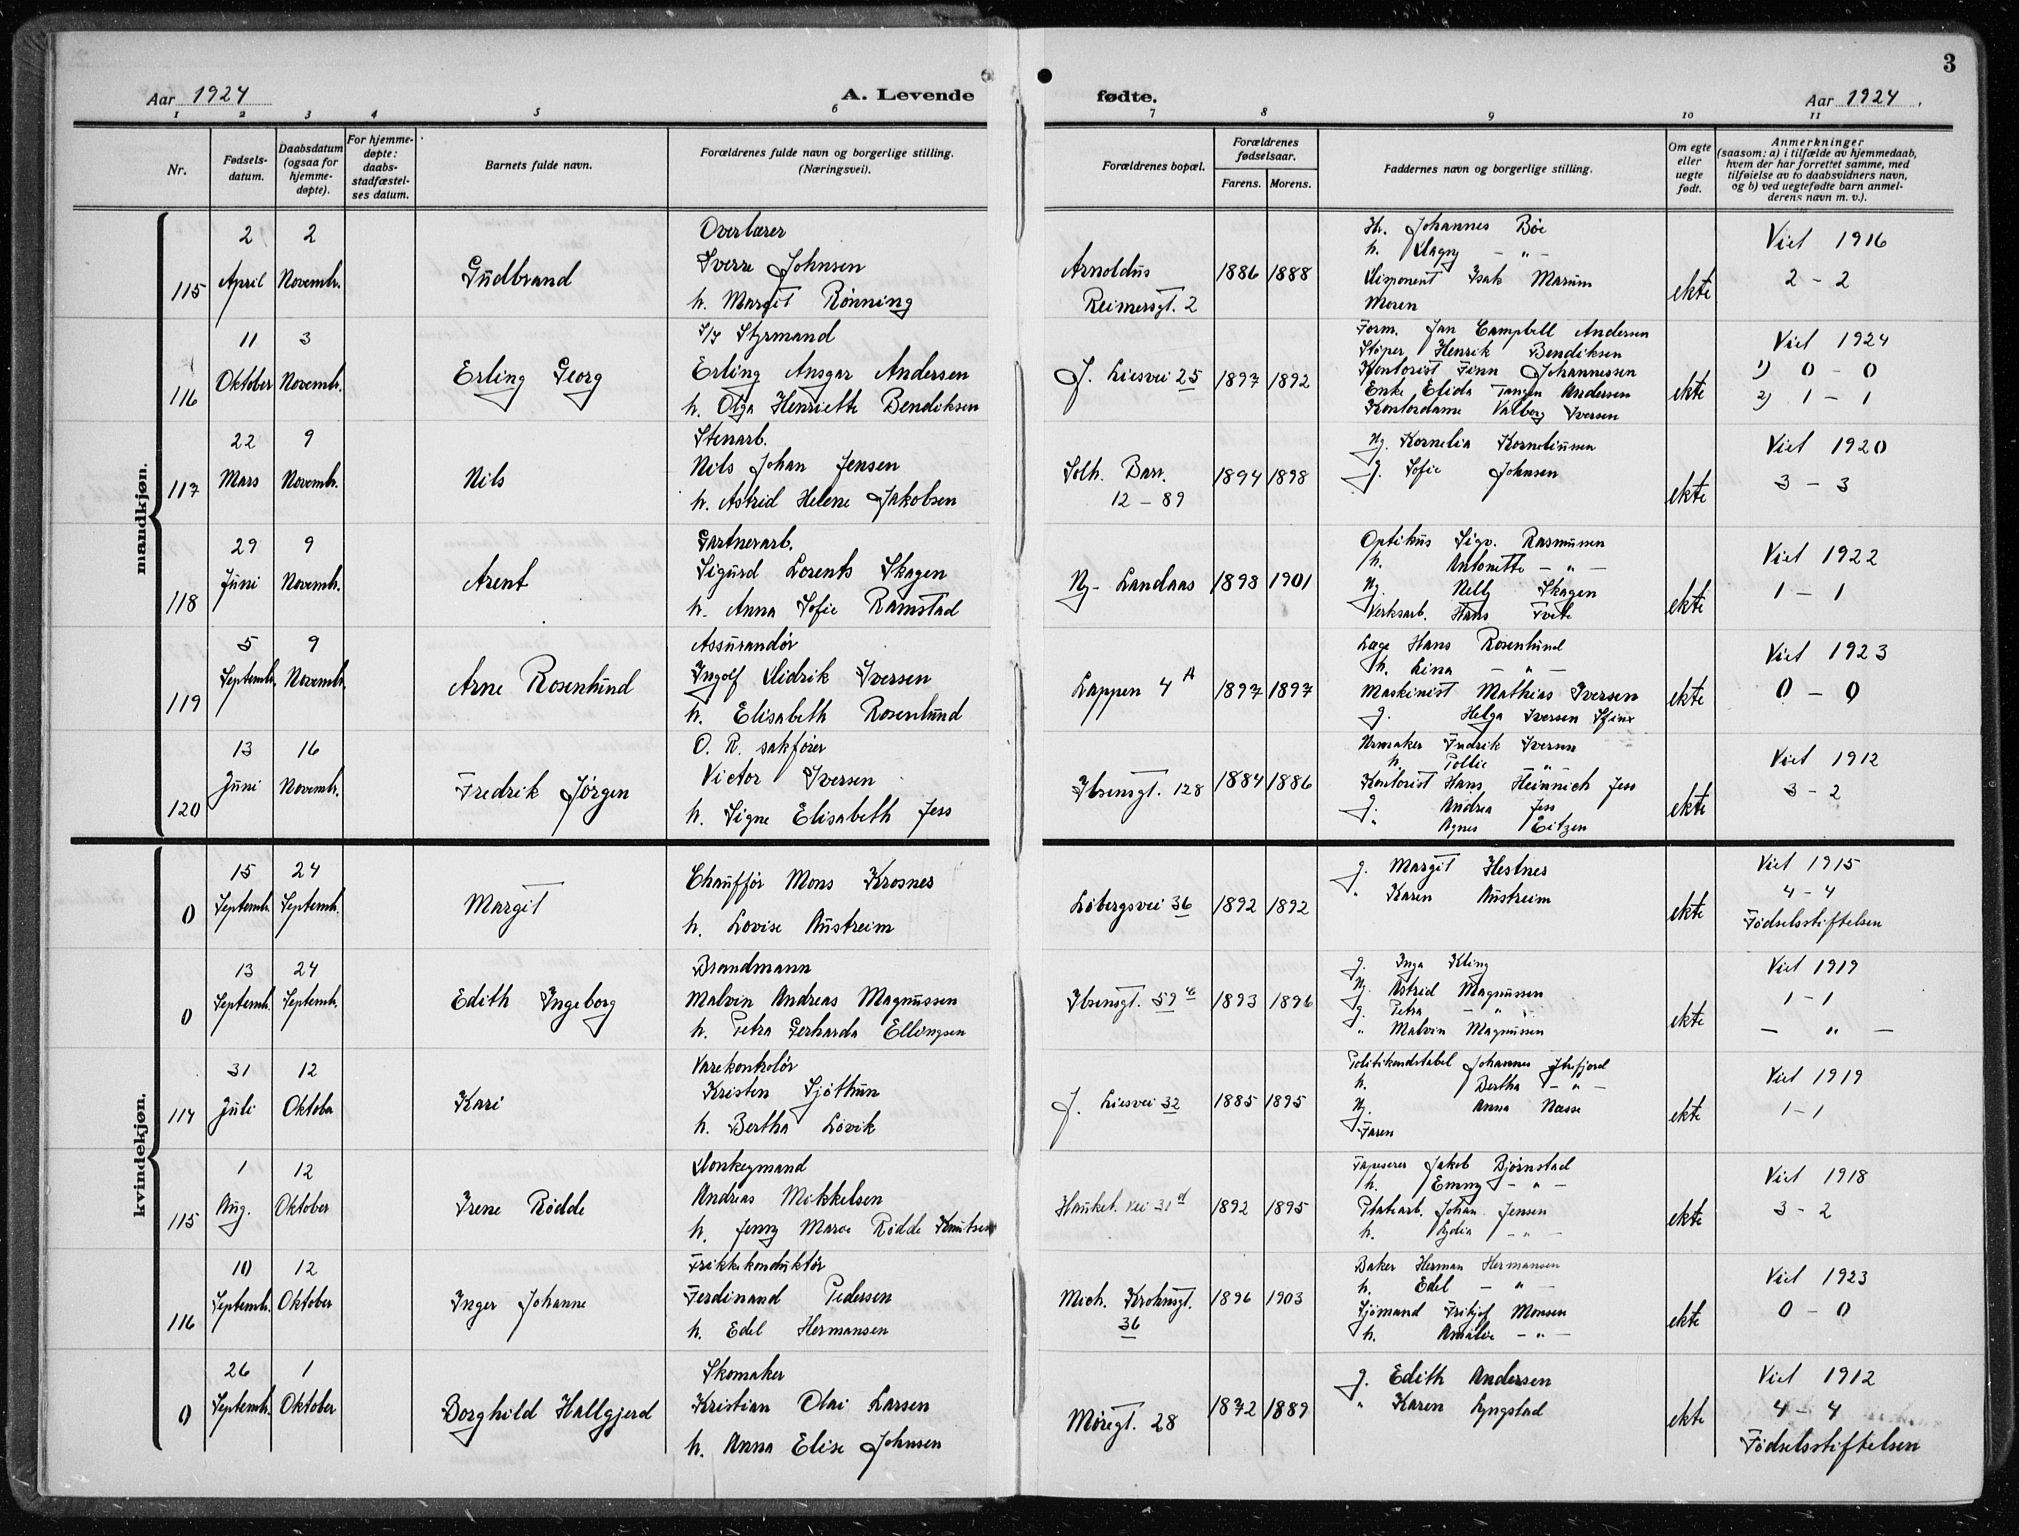 3
Aar 1924
A. Levende
fødte.
Aar 1924
1 2 3 4 5 6 7 8 9 10 11
Nr.
Fødsels-
datum.
Daabsdatum
(ogsaa for
hjemme-
døpte).
For hjemme-
døpte:
daabs-
stadfæstel-
ses datum.
Barnets fulde navn.
Forældrenes fulde navn og borgerlige stilling.
(Næringsvei).
Forældrenes bopæl.
Forældrenes
fødselsaar.
Farens. Morens.
Faddernes navn og borgerlige stilling.
Om egte
eller
uegte
født.
Anmerkninger
(saasom: a) i tilfælde av hjemmedaab,
hvem der har forrettet samme, med
tilføielse av to daabsvidners navn,
og b) ved uegtefødte barn anmel-
derens navn m. v.).
mandkjøn.
115
2
April
2
Novembr.
Gudbrand
Overlærer
Sverre Johnsen
h. Margit Rönning
Arnoldus
Reimersgt. 2
1886 1888
Hr. Johannes Böe
h. Dagny — „ —
Disponent Isak Marum
Moren
ekte
Viet 1916
2 – 2
116
11
Oktober
3
Novembr.
Erling Georg
S/s Styrmand
Erling Ansgar Andersen
h. Olga Henriette Bendiksen
J. Liesvei 25
1897 1892
Form. Jan Campbell Andersen
Støper Henrik Bendiksen
Kontorist Finn Johannessen
Enke Elida Tangen Andersen
Kontordame Valborg Iversen
ekte
Viet 1924
1) 0 – 0
2) 1 – 1
117
22
Mars
9
Novembr.
Nils
Stenarb.
Nils Johan Jensen
h. Astrid Helene Jakobsen
Solh. Barr.
12 – 89
1894 1898
Ng. Kornelia Korneliussen
g. Sofie Johnsen
ekte
Viet 1920
3 – 3
118
29
Juni
9
Novembr.
Arent
Gartnerarb.
Sigurd Lorents Skagen
h. Anna Sofie Ramstad
Ny-Landaas
1898 1901
Optikus Sigv. Rasmussen
h. Antonette — „ —
Ng. Nelly Skagen
Verksarb. Hans Tveit
ekte
Viet 1922
1 – 1
119
5
Septembr.
9
Novembr.
Arne Rosenlund
Assurandör
Ingolf Didrik Iversen
h. Elisabeth Rosenlund
Lappen 4 A
1897 1897
Læge Hans Rosenlund
h. Lina — „ —
Maskinist Mathias Iversen
g. Helga Iversen
ekte
Viet 1923
0 – 0
120
13
Juni
16
Novembr.
Fredrik Jørgen
O. R. sakfører
Victor Iversen
h. Signe Elisabeth Jess
Ibsensgt. 128
1884 1886
Urmaker Fredrik Iversen
h. „
Kontorist Hans Heinrich Jess
g. Andrea Jess
„ Agnes Eitzen
ekte
Viet 1912
3 – 2
kvindekjøn.
0
15
Septembr.
24
Septembr.
Margit
Chauffør Mons Krosnes
h. Lovise Austreim
Løbergsvei 36
1892 1892
g. Margit Hestnes
„ Karen Austreim
ekte
Viet 1915
4 – 4
Fødselsstiftelsen
0
13
Septembr.
24
Septembr.
Edith Ingeborg
Brandmann
Malvin Andreas Magnussen
h. Petra Gerharda Ellingsen
Ibsensgt. 59
1893 1896
g. Inga Kling
Ng. Astrid Magnussen
g. Petra — „ —
„ Malvin Magnussen
ekte
Viet 1919
1 – 1
— „ —
114
31
Juli
12
Oktober
Kari
Varekontrolør
Kristen Sjøthun
h. Bertha Løvik
J. Liesvei 32
1885 1895
Politikonstabel Johannes
h. Bertha — „ —
Ng. Anna Næsse
Faren
ekte
Viet 1919
1 – 1
115
1
Aug.
12
Oktober
Irene Rødde
Donkeymand
Andreas Mikkelsen
h. Jenny Marie Rødde Knutsen
Hauket. vei 31
1892 1895
Tapeserer Jakob Bjørnstad
h. Emmy — „ —
Platearb. Johan Jensen
h. Lydia — „ —
ekte
Viet 1918
3 – 2
116
10
Septembr.
12
Oktober
Inger Johanne
Trikkekonduktør
Ferdinand Pedersen
h. Edel Hermansen
Mich. Krohnsgt.
36
1896 1903
Baker Herman Hermansen
h. Edel — „ —
Sjømand Fritjof Monsen
h. Amalie — „ —
ekte
Viet 1923
0 – 0
0
26
Septembr.
1
Oktober
Borghild Hallgjerd
Skomaker
Kristian Olai Larsen
h. Anna Elise Johnsen
Møregt. 28
1872 1889
g. Edith Andersen
„ Karen Lyngstad
ekte
Viet 1912
4 – 4
Fødselsstiftelsen